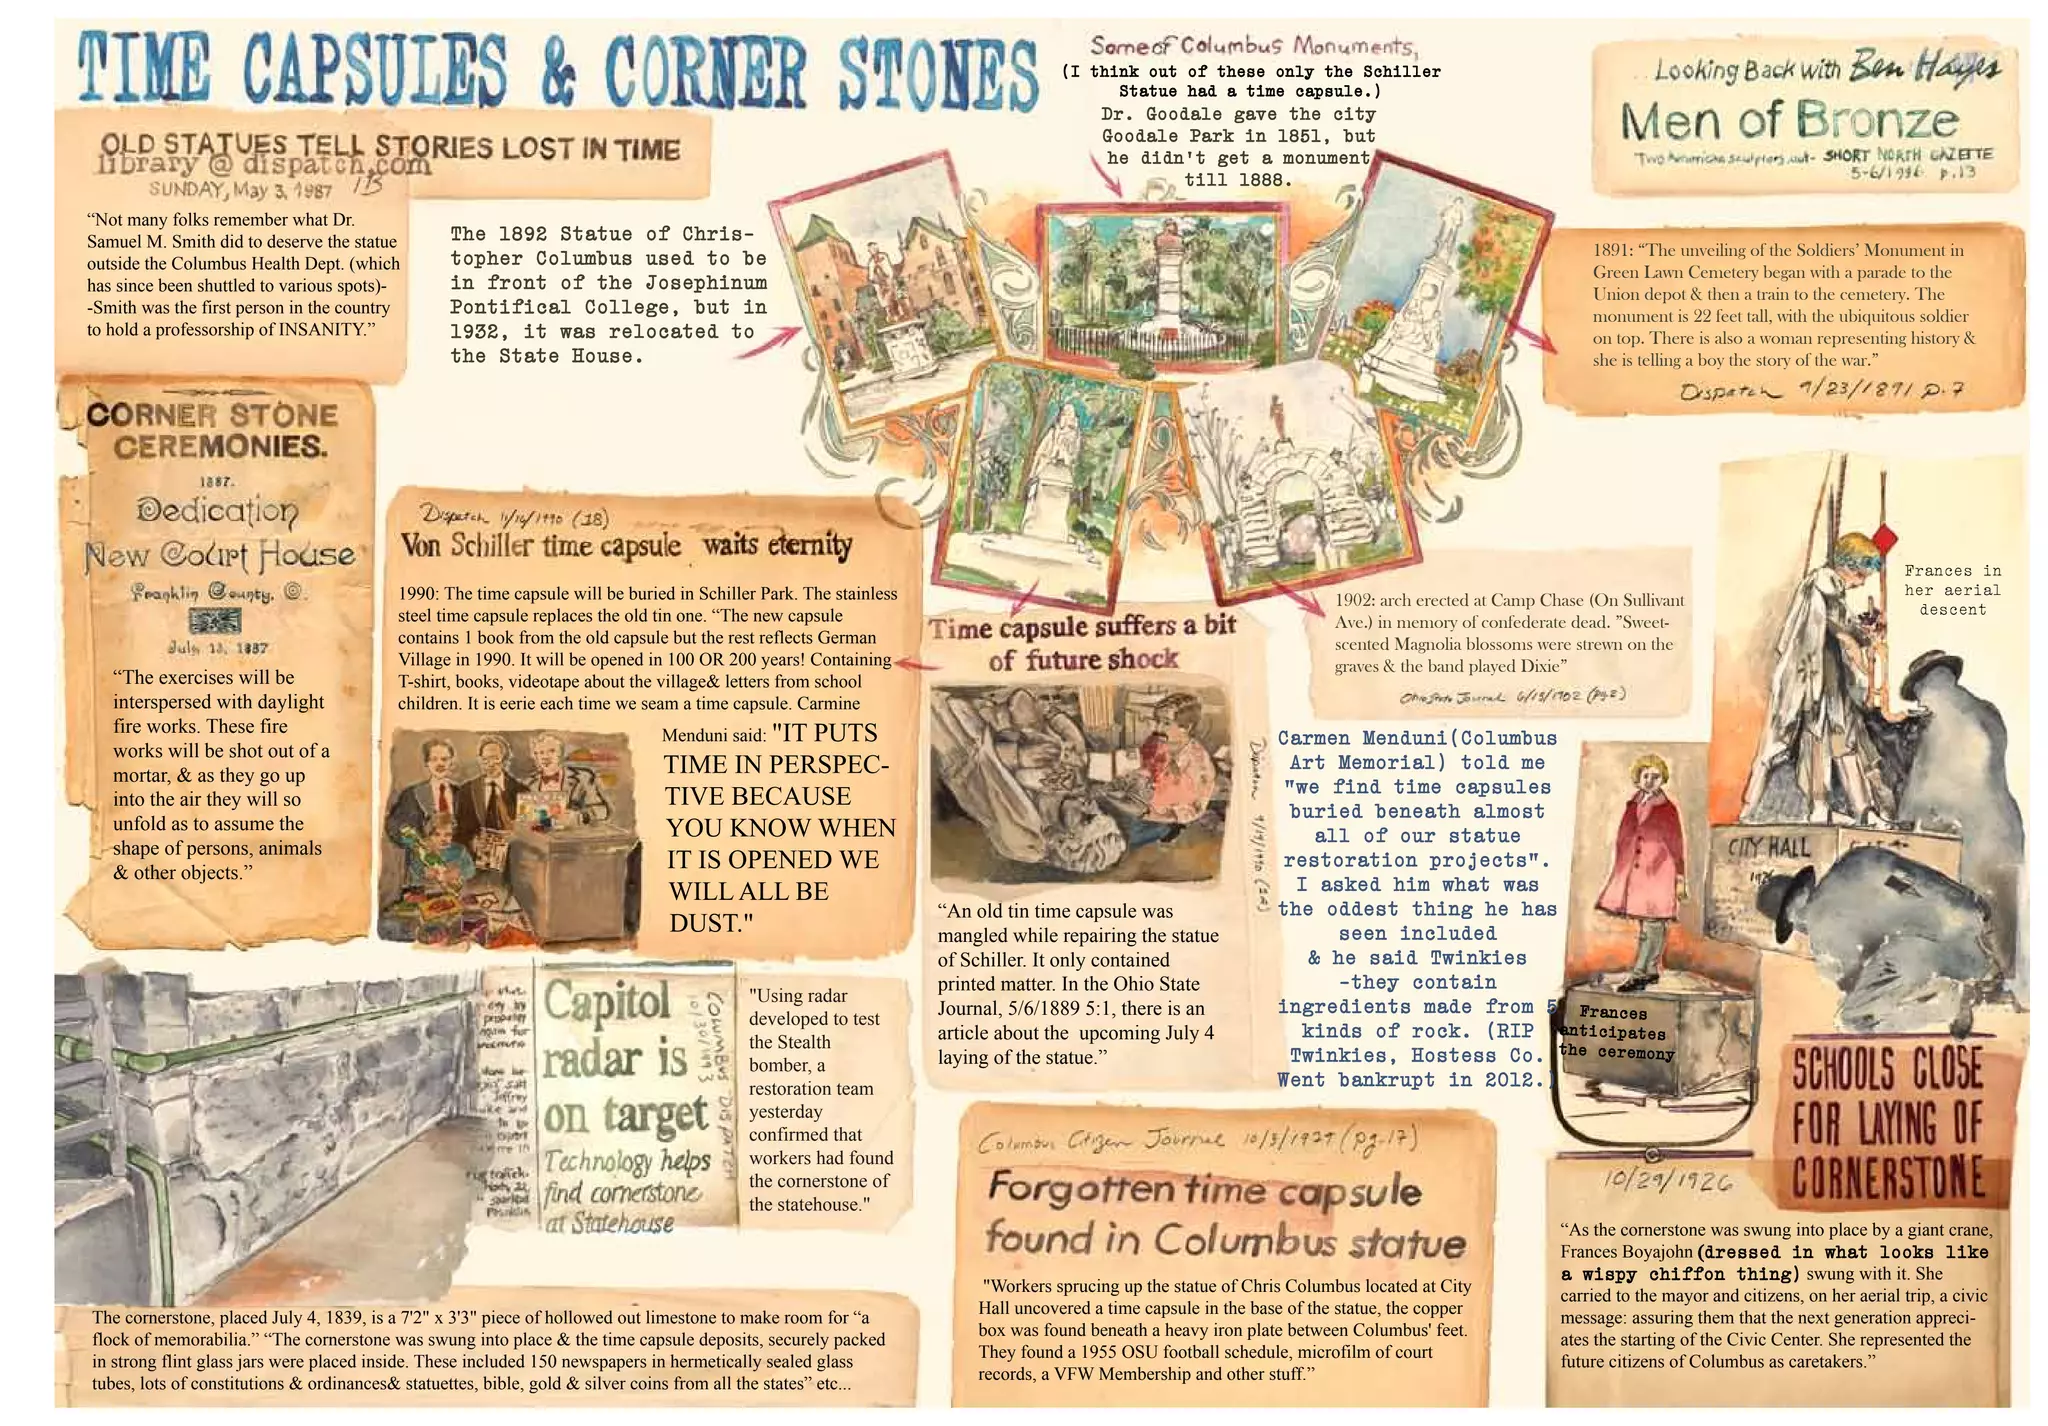 TIME CAPSULES & CORNER STONES
OLD STATUES TELL STORIES LOST IN TIME
library @ dispatch.com
SUNDAY, May 3, 1987 1B
“Not many folks remember what Dr.
Samuel M. Smith did to deserve the statue
outside the Columbus Health Dept. (which
has since been shuttled to various spots)-
-Smith was the first person in the country
to hold a professorship of INSANITY.”
The 1892 Statue of Chris-
topher Columbus used to be
in front of the Josephinum
Pontifical College, but in
1932, it was relocated to
the State House.
Some of Columbus Monuments,
(I think out of these only the Schiller
Statue had a time capsule.)
Dr. Goodale gave the city
Goodale Park in 1851, but
he didn't get a monument
till 1888.
Looking Back with Ben Hayes
Men of Bronze
SHORT NORTH GAZETTE
5-6/1996 p.13
1891: “The unveiling of the Soldiers’ Monument in
Green Lawn Cemetery began with a parade to the
Union depot & then a train to the cemetery. The
monument is 22 feet tall, with the ubiquitous soldier
on top. There is also a woman representing history &
she is telling a boy the story of the war.”
Dispatch 9/23/1891 p.7
CORNER STONE
CEREMONIES.
1887.
Dedication
New Court House
Franklin County, O.
July 13, 1887
“The exercises will be
interspersed with daylight
fire works. These fire
works will be shot out of a
mortar, & as they go up
into the air they will so
unfold as to assume the
shape of persons, animals
& other objects.”
Dispatch 11/16/1990 (1B)
Von Schiller time capsule waits eternity
1990: The time capsule will be buried in Schiller Park. The stainless
steel time capsule replaces the old tin one. “The new capsule
contains 1 book from the old capsule but the rest reflects German
Village in 1990. It will be opened in 100 OR 200 years! Containing
T-shirt, books, videotape about the village& letters from school
children. It is eerie each time we seam a time capsule. Carmine
Menduni said: "IT PUTS
TIME IN PERSPEC-
TIVE BECAUSE
YOU KNOW WHEN
IT IS OPENED WE
WILL ALL BE
DUST."
Time capsule suffers a bit
of future shock
Dispatch 9/19/1990
“An old tin time capsule was
mangled while repairing the statue
of Schiller. It only contained
printed matter. In the Ohio State
Journal, 5/6/1889 5:1, there is an
article about the upcoming July 4
laying of the statue.”
1902: arch erected at Camp Chase (On Sullivant
Ave.) in memory of confederate dead. ”Sweet-
scented Magnolia blossoms were strewn on the
graves & the band played Dixie”
Ohio State Journal 6/13/1902 (pg.2)
Carmen Menduni(Columbus
Art Memorial) told me
"we find time capsules
buried beneath almost
all of our statue
restoration projects".
I asked him what was
the oddest thing he has
seen included
& he said Twinkies
-they contain
ingredients made from 5
kinds of rock. (RIP
Twinkies, Hostess Co.
Went bankrupt in 2012.)
Frances in
her aerial
descent
CITY HALL
1926
Frances
anticipates
the ceremony
SCHOOLS CLOSE
FOR LAYING OF
CORNERSTONE
10/29/1926
“As the cornerstone was swung into place by a giant crane,
Frances Boyajohn (dressed in what looks like
a wispy chiffon thing) swung with it. She
carried to the mayor and citizens, on her aerial trip, a civic
message: assuring them that the next generation appreci-
ates the starting of the Civic Center. She represented the
future citizens of Columbus as caretakers.”
Capitol
radar is
on target
Technology helps
find cornerstone
at Statehouse
COLUMBUS DISPATCH
10/30/1993
"Using radar
developed to test
the Stealth
bomber, a
restoration team
yesterday
confirmed that
workers had found
the cornerstone of
the statehouse."
The cornerstone, placed July 4, 1839, is a 7'2" x 3'3" piece of hollowed out limestone to make room for “a
flock of memorabilia.” “The cornerstone was swung into place & the time capsule deposits, securely packed
in strong flint glass jars were placed inside. These included 150 newspapers in hermetically sealed glass
tubes, lots of constitutions & ordinances& statuettes, bible, gold & silver coins from all the states” etc...
Columbus Citizen Journal (pg.17)
Forgotten time capsule
found in Columbus statue
"Workers sprucing up the statue of Chris Columbus located at City
Hall uncovered a time capsule in the base of the statue, the copper
box was found beneath a heavy iron plate between Columbus' feet.
They found a 1955 OSU football schedule, microfilm of court
records, a VFW Membership and other stuff.”